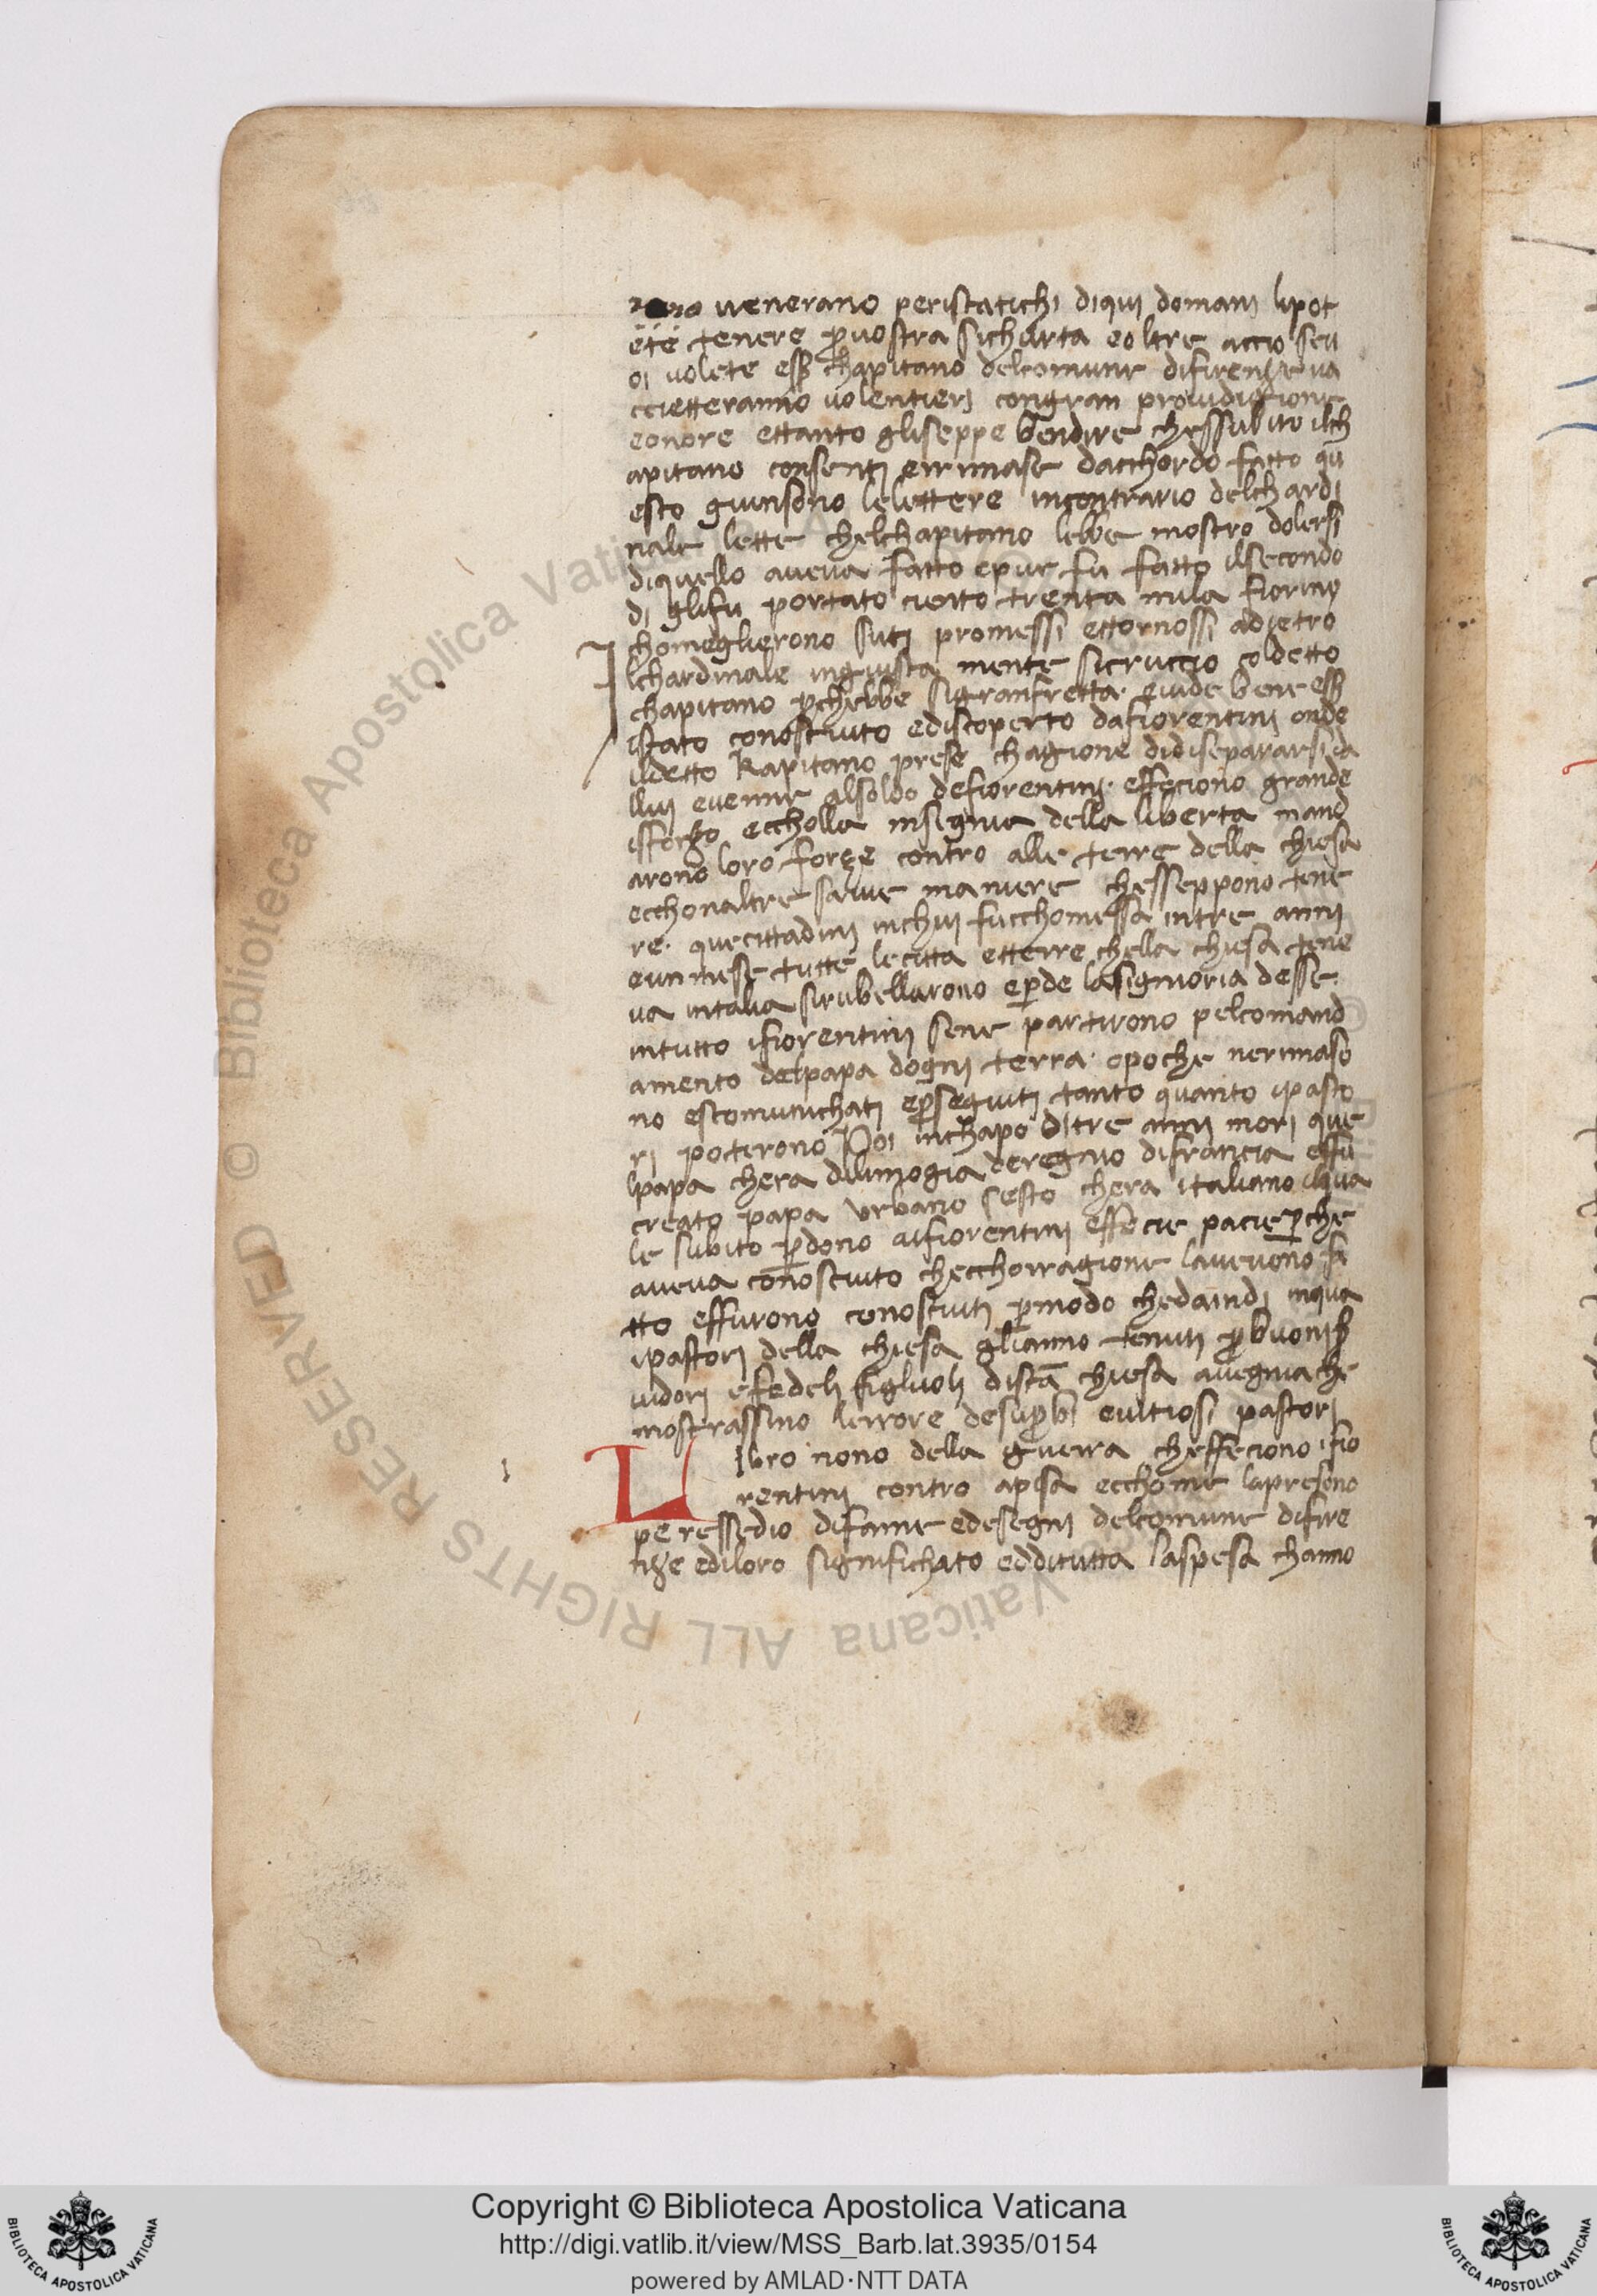 venerano per istatichi diqui domani lipot
ete tenere p̱vostra sichurta eoltre accio seu
oi volete esβ chapitano delcomune difirenze va
ccietteranno volentieri congran
eonore ettanto gliseppe bendire chessubito ilch
apitano consenti errimase dacchordo fatto qu
esto giunsono lelettere incontrario delchardi
nale lette chelchapitano lebbe mostro dolersi
diquello aveva fatto epur fu fatto ilsecondo
di glifu portato cierto trenta mila fiorini
chomeglierono suti promessi ettornossi adietro
Ilchardinale ingiusta mente sicruccio coldetto
chapitano p̱chebbe sigranfretta. evide bene esβ
istato conosciuto ediscoperto dafiorentini onde
ildetto Kapitano prese chagione didisepararsi da
llui evenne alsoldo defiorentini. effeciono grande
isforzo eccholla insegnia della liberta mand
arono loro forze contro alle terre della chiesa
ecchonaltre savie maniere chesseppono tene
re. quecittadini inchui fucchomessa intre anni
eun mese tutte lecitta etterre chella chiesa tene
va intalia sirubellarono ep̱de lasignioria desse.
intutto ifiorentini sene partirono pelcomand
amento delpapa dogni terra. epoche nerimaso
no escomunichati ep̱seguiti tanto quanto ipasto
ri poterono Poi inchapo ditre anni mori que
lpapa chera dilimogia deregnio difrancia effu
creato papa urbano sesto chera italiano ilqua
le subito p̱dono aifiorentini effecie pacie p̱che
aveva conosciuto checchorragione lavevono fa
tto effurono conosciuti p̱modo chedaindi inqua
ipastori della chiesa glianno tenuti p̱ buoniβ
vidori efedeli figluoli discā chiesa avegniache
mostrassino lerrore desup̱bi evitiosi pastori
Libro nono della guerra cheffeciono ifio
rentini contro apisa ecchome lapresono
peressedio difame edesegni delcomune difire
nze ediloro significhato edditutta laspesa channo
Biblioteca Apostolica Vaticana ALL RIGHTS RESERVED ©
Copyright © Biblioteca Apostolica Vaticana
http://digi.vatlib.it/view/MSS_Barb.lat.3935/0154
powered by AMLAD·NTT DATA
BIBLIOTECA APOSTOLICA VATICANA
BIBLIOTECA APOSTOLICA VATICANA